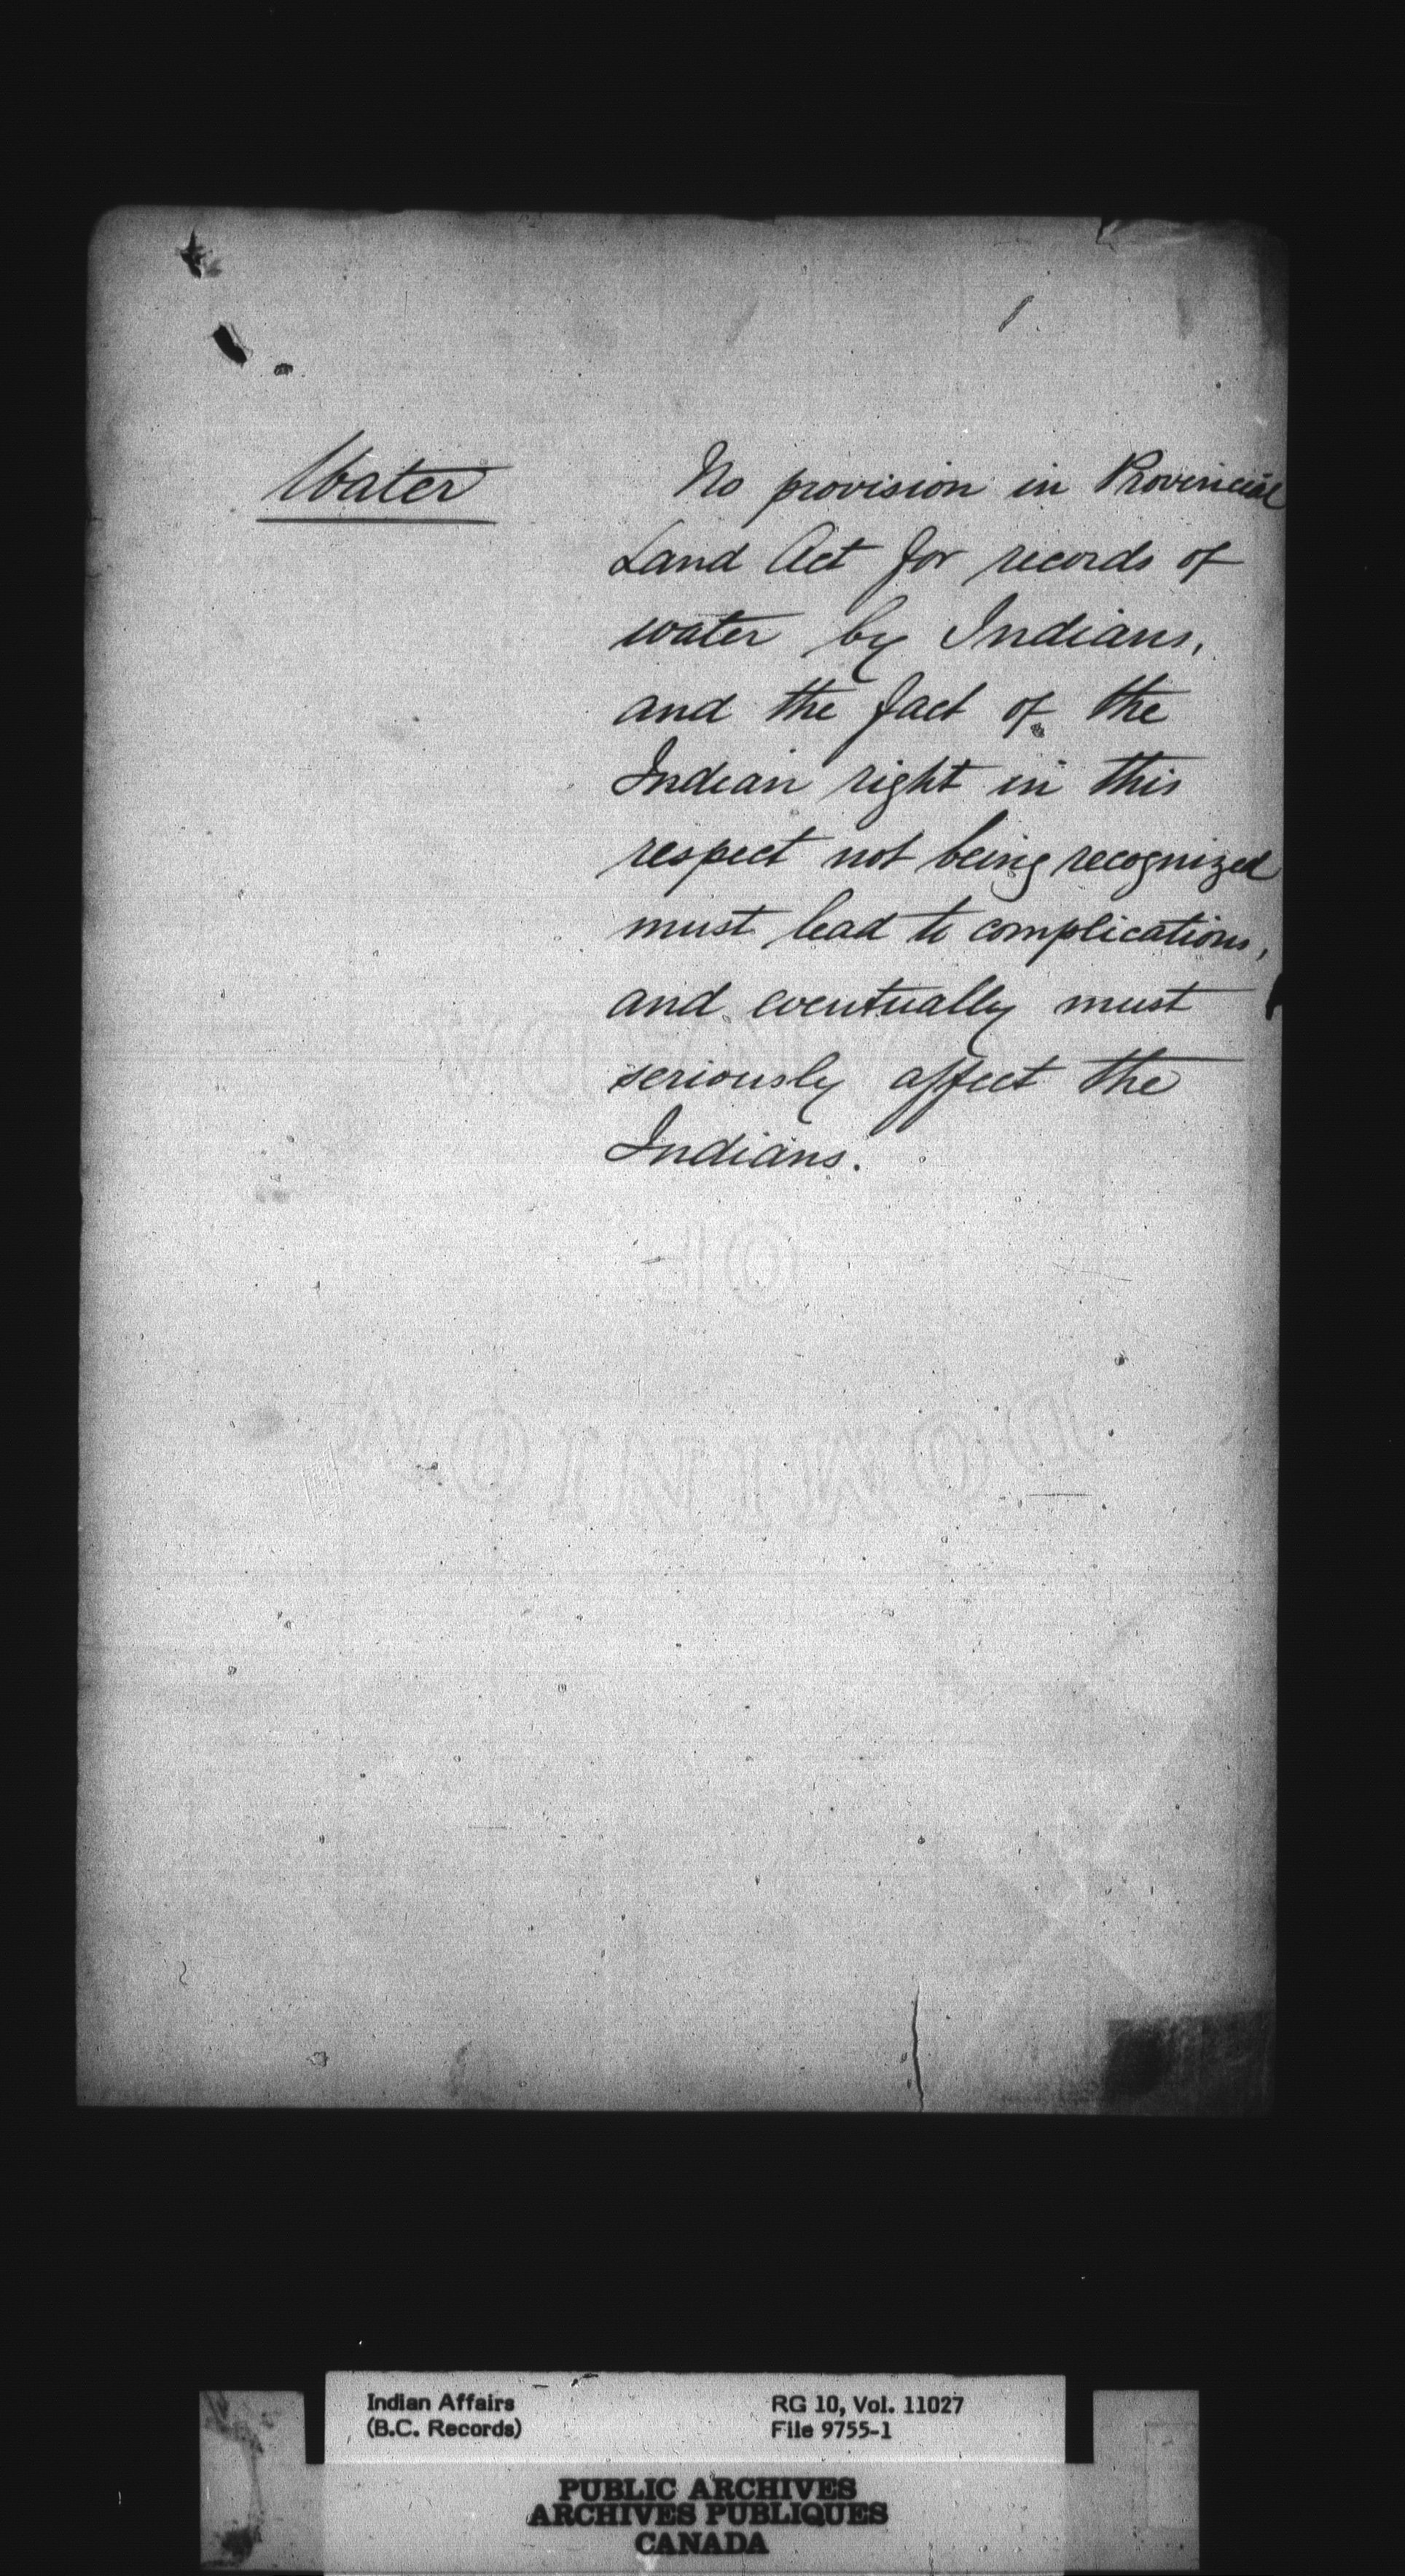 1.
Water
No provision in Provincial
Land Act for records of
water by Indians,
and the fact of the
Indian right in this
respect not being recognized
must lead to complications,
and eventually must
seriously affect the
Indians.
Indian Affairs
(B.C. Records)
RG 10, Vol. 11027
File 9755-1
PUBLIC ARCHIVES
ARCHIVES PUBLIQUES
CANADA